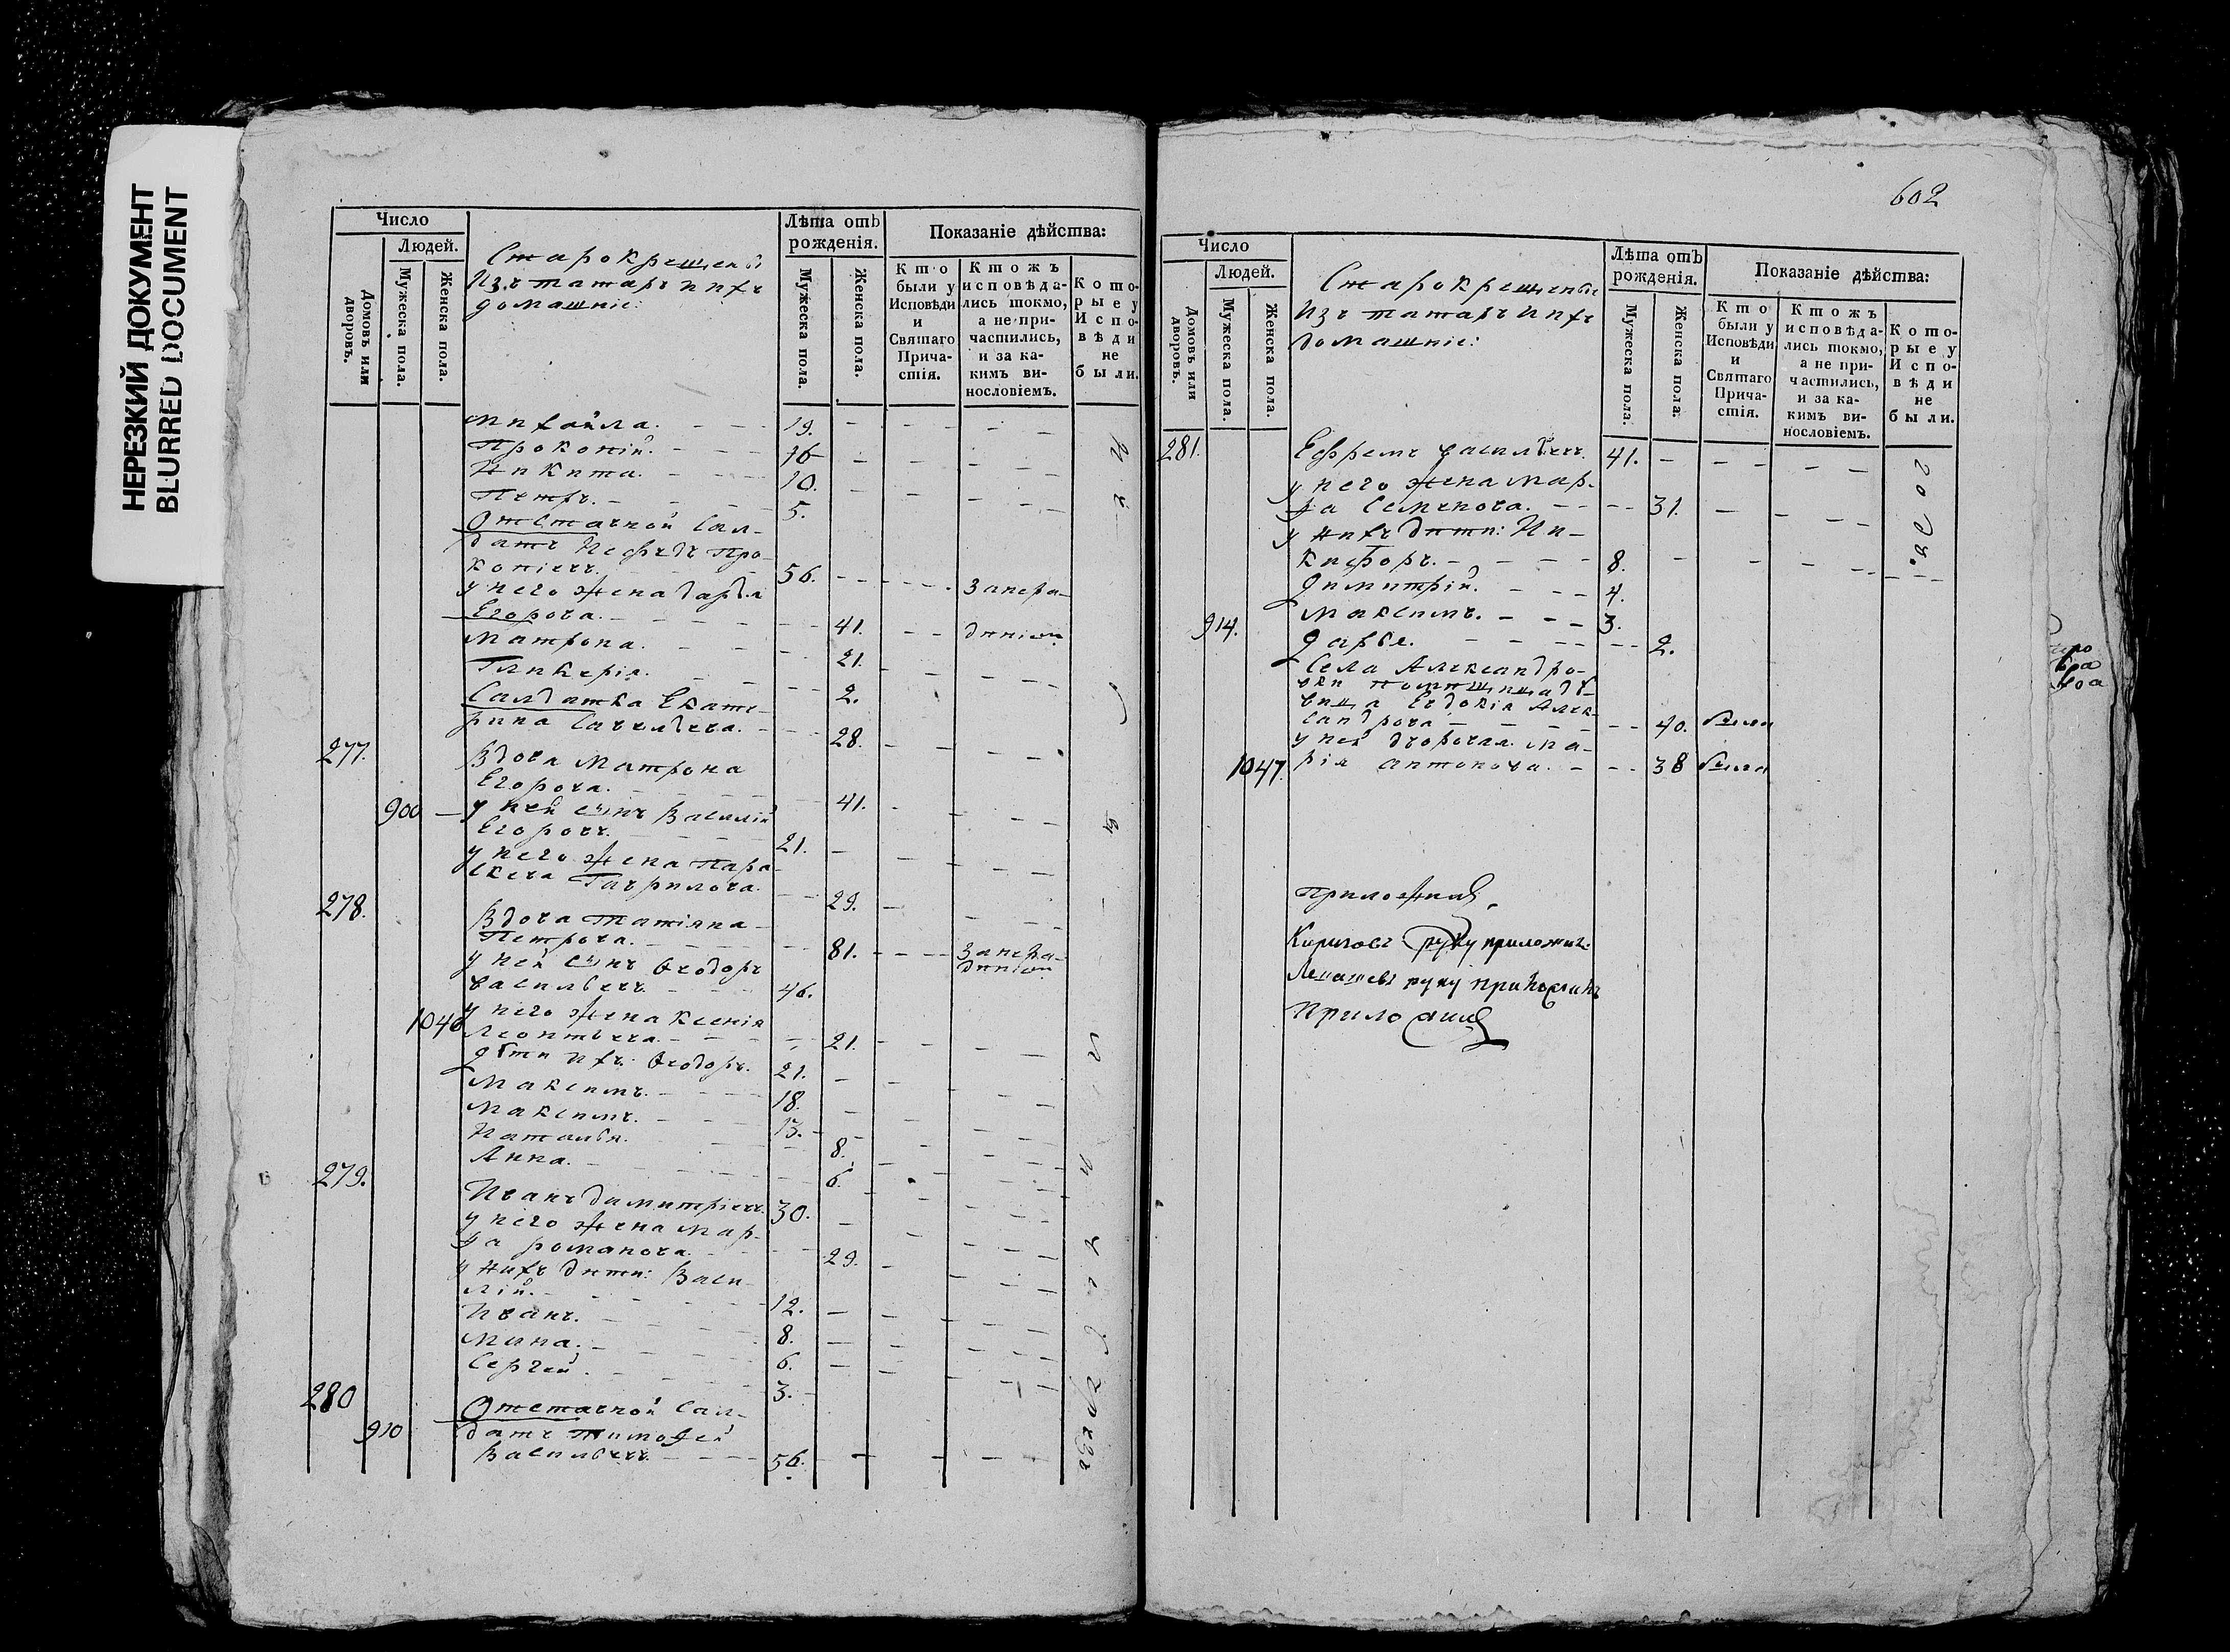 НЕРЕЗКИЙ ДОКУМЕНТ
BLURRED DOCUMENT
Число
Людей.
Домовъ или дворовъ.
Мужеска пола.
Женска пола.
Старокрещены
Изъ татаръ и ихъ
домашніе:
Лѣта отъ
рожденія.
Мужеска пола.
Женска пола.
Показаніе дѣйства:
Кто были у Исповѣди и Святаго Причастія.
Ктожъ исповѣдались токмо, а не причастились, и за какимъ винословіемъ.
Которые у Исповѣди не были.
Михайла. 19.
Прокопій. 16
Никита. 10.
Петръ. 5.
Отставной Сал-
датъ Нефедъ Про-
копіевъ. 56.
у него жена Дарья За нера-
Егорова. 41. дѣніем
Матрона. 21.
Гликерія. 2.
Салдатка Екате-
рина Савельева. 28.
277. Вдова Матрона
Егорова. 41.
900 у ней сынъ Василій
Егоровъ. 21.
у него жена Пара-
скева Гаврилова. 29.
278. Вдова Татіяна
Петрова. 81. За нера-
у ней сынъ Ѳеодоръ дѣніем
Васильевъ 46.
1046 у него жена Ксенія
Леонтьева. 21.
Дѣти ихъ: Ѳеодоръ. 21.
Максимъ. 18.
Максимъ. 13.
Наталья. 8.
Анна. 6.
279. Иванъ Димитріевъ 30.
у него жена Мар-
ѳа Романова. 29.
у нихъ дѣти: Васи-
лій. 12.
Иванъ. 8.
Мина. 6.
Сергей. 3.
280 Отставной Сал-
910 датъ Тимоѳей
Васильевъ 56.
602
Число
Людей.
Домовъ или дворовъ.
Мужеска пола.
Женска пола.
Старокрещеные
Изъ татаръ и ихъ
домашніе:
Лѣта отъ
рожденія.
Мужеска пола.
Женска пола.
Показаніе дѣйства:
Кто были у Исповѣди и Святаго Причастія.
Ктожъ исповѣдались токмо, а не причастились, и за какимъ винословіемъ.
Которые у Исповѣди не были.
281. Ефремъ Васильевъ 41.
у него жена Мар-
ѳа Семенова. 31.
у нихъ дѣти: Ни-
кифоръ. 8.
Димитрій. 4.
914. Максимъ. 3.
Дарья. 2.
Села Александро-
вки помѣщица дѣ-
вица Евдокія Алек-
сандрова 40. была
у ней дворовая Ма-
1047. рія Антонова. 38 была
году.
Кириловъ руку приложилъ
руку